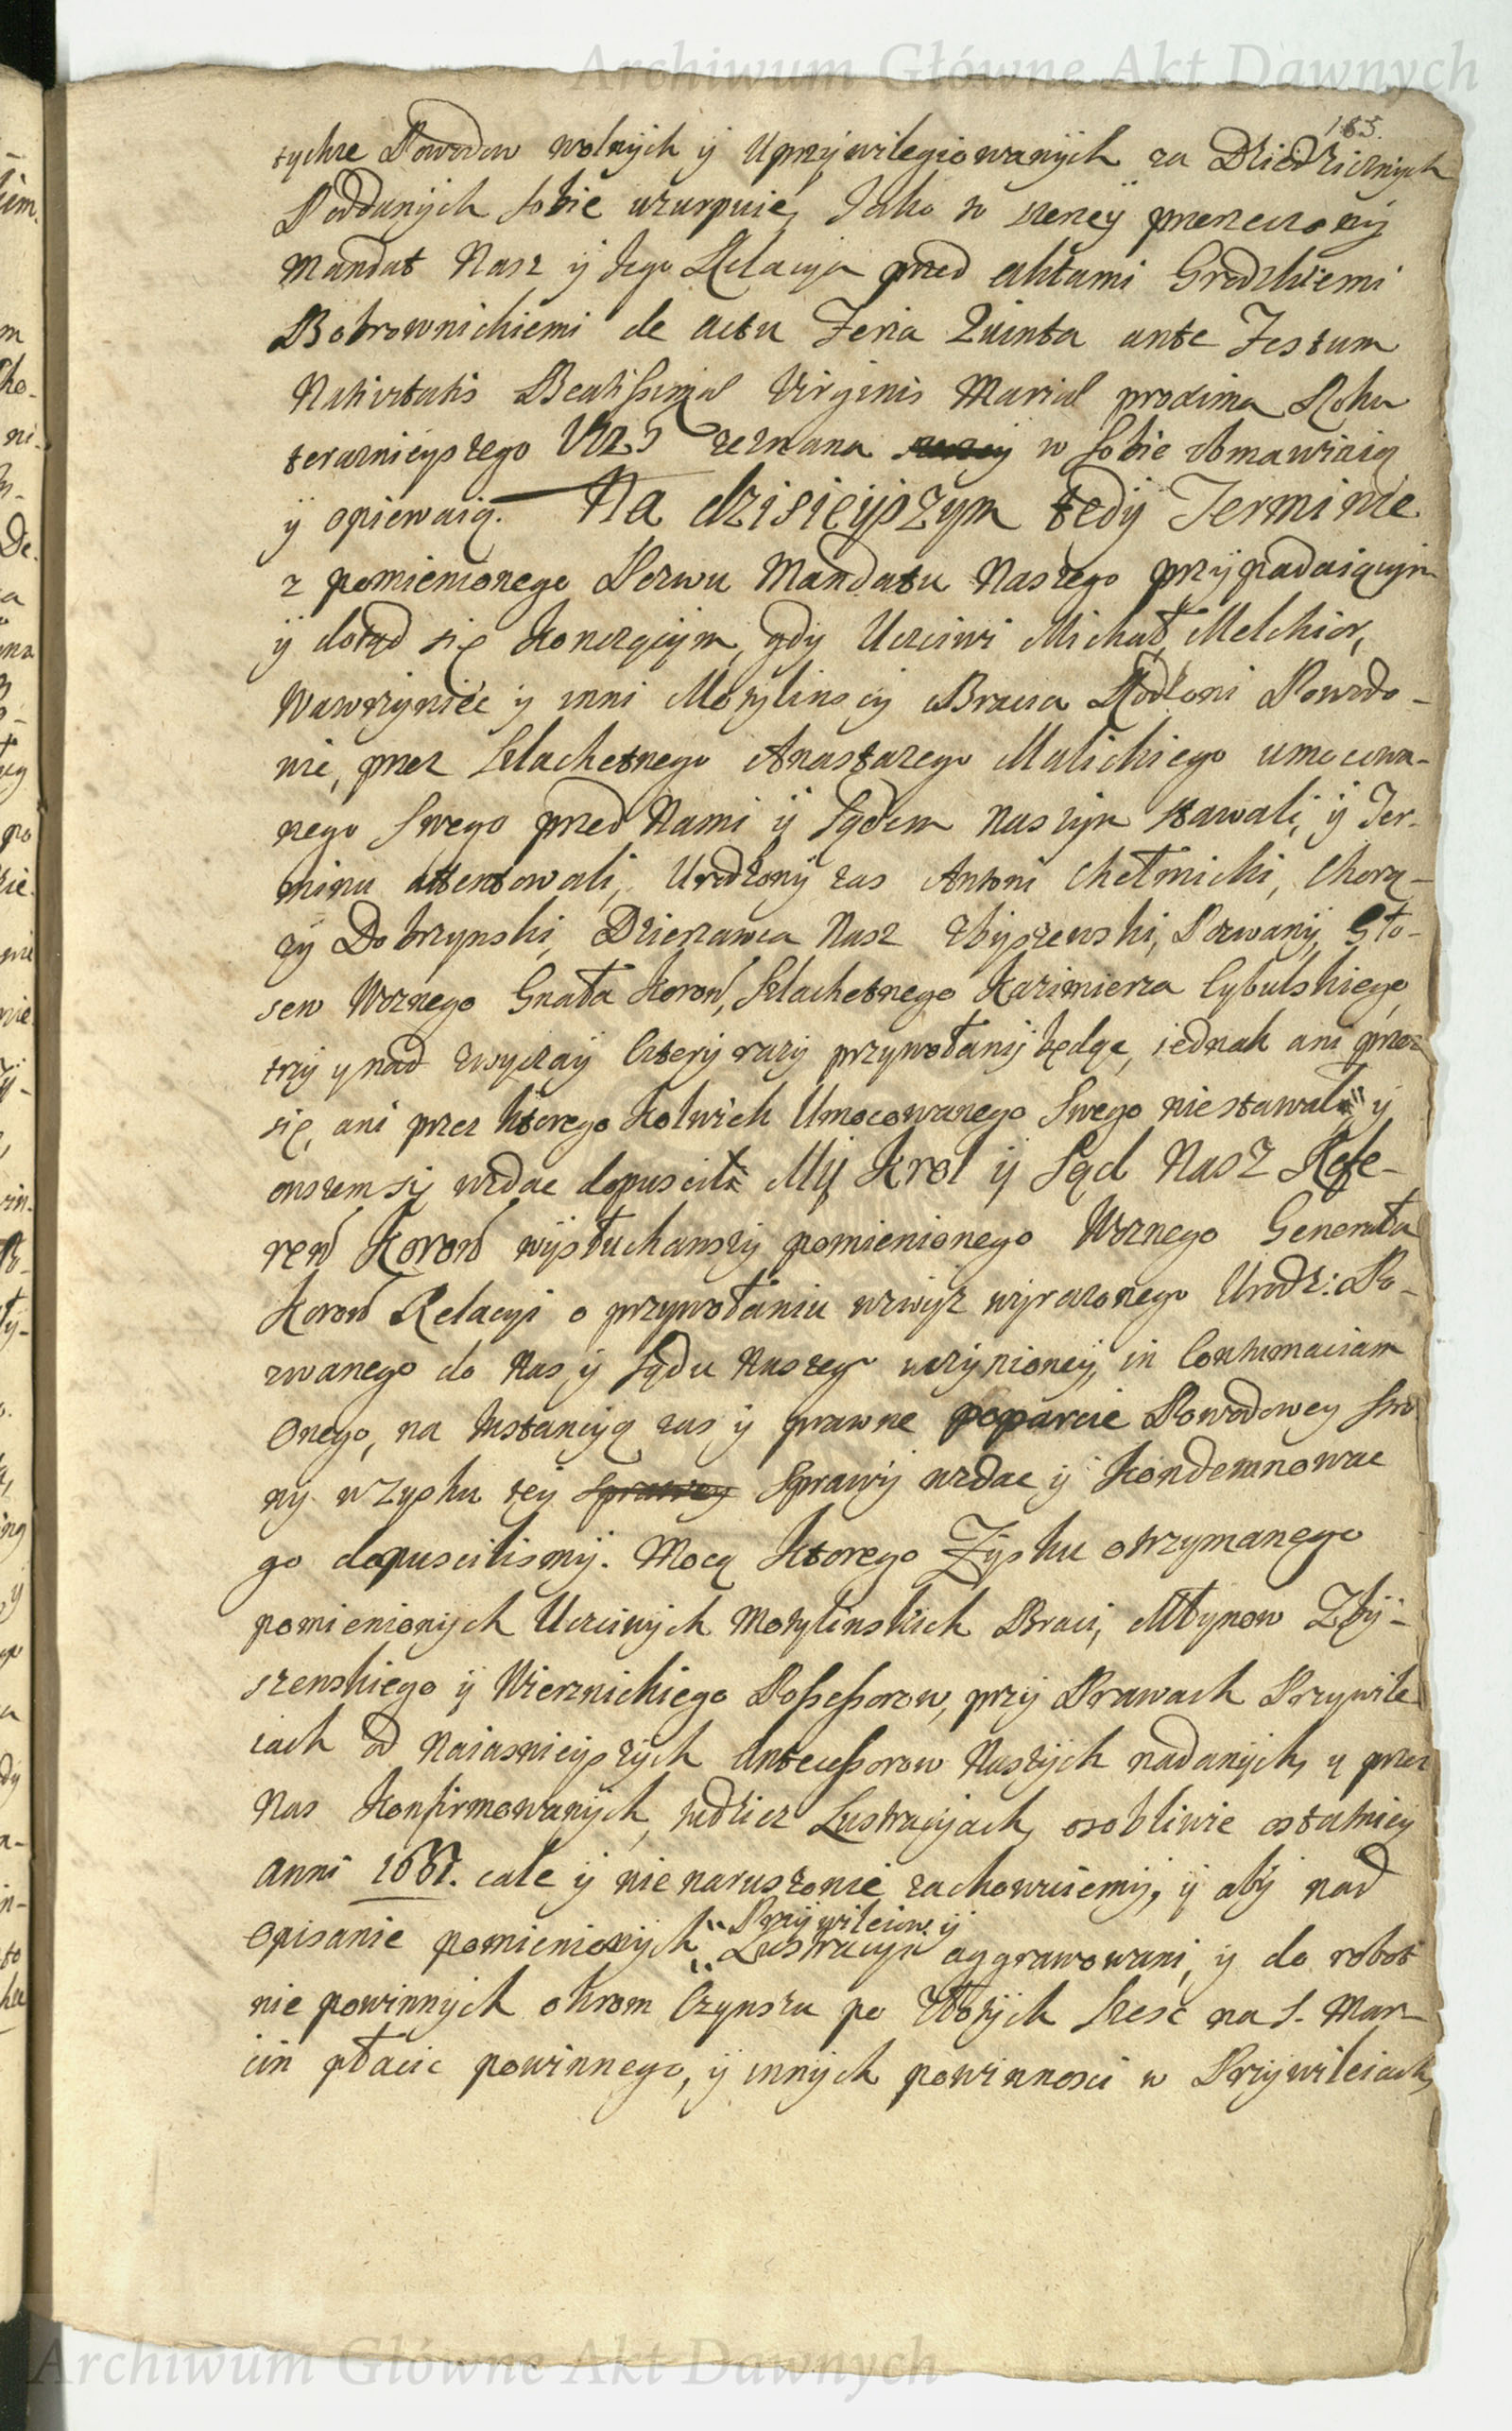 Archiwum Główne Akt Dawnych
185.
tychże Powodow wolnych y Uprzywilegiowanych za Dziedzicznych
Poddanych sobie uzurpuie, Jako to szerzey przerzeczony
Mandat Nasz y Jego Relacya przed aktami Grodzkiemi
Bobrownickiemi de actu Feria Quinta ante Festum
Nativitatis Beatissimae Virginis Mariae proxima Roku
teraznieyszego zeznana w sobie obmawiaią
y opiewaią. Na dzisieyszym tedy Terminie
z pomienionego Pozwu Mandatu Naszego przypadaiącym
y dotąd się konczącym, gdy Uczciwi Michał, Melchior,
Wawrzyniec y inni Motylinscy Bracia Rodzoni Powodo-
wie, przez Szlachetnego Anastazego Malickiego umocowa-
nego Swego przed Nami y Sądem Naszym stawali, y Ter-
minu attentowali, Urodzony zas Antoni Chełmicki, Chorą-
ży Dobrzynski, Dzierzawca Nasz Zbyszewski, Pozwany, Gło-
sem Woznego Gnała Koron, Szlachetnego Kazimierza Cybulskiego
trzy y nad zwyczay Cztery razy przywołany będąc, iednak ani przez
się, ani przez ktorego kolwiek Umocowanego Swego nie stawał, y
owszem się wzdac dopuscił My Krol y Sąd Nasz Refe-
ren Koron wysłuchawszy pomienionego Woznego Generała
Koron Relacyi o przywołaniu wzwyz wyrazonego Urodz: Po-
zwanego do Nas y Sądu Naszego uczynioney, in Contumaciam
Onego, na Instancyą zas y prawne poparcie Powodowey Stro
ny w Zysku tey sprawy Sprawy wzdac y kondemnowac
go dopuscilismy. Mocą ktorego Zysku otrzymanego
pomienionych Uczciwych Motylinskich Braci, Młynow Zby-
szewskiego y Wiernickiego Possessorow, przy Prawach Przywile
iach od Naiasnieyszych Antecessorow Naszych nadanych, y przez
Nas konfirmowanych, tudziez Lustracyach, osobliwie ostatniey
Anni całe y nienaruszenie zachowuiemy, y aby nad
Opisanie pomienionych Przywileiow y Lustracyi aggrawowani, y do robot
nie powinnych okrom Czynszu po Złotych szesc na S. Mar-
cin płacic powinnego, y innych powinnosci w Przywileiach
Archiwum Główne Akt Dawnych